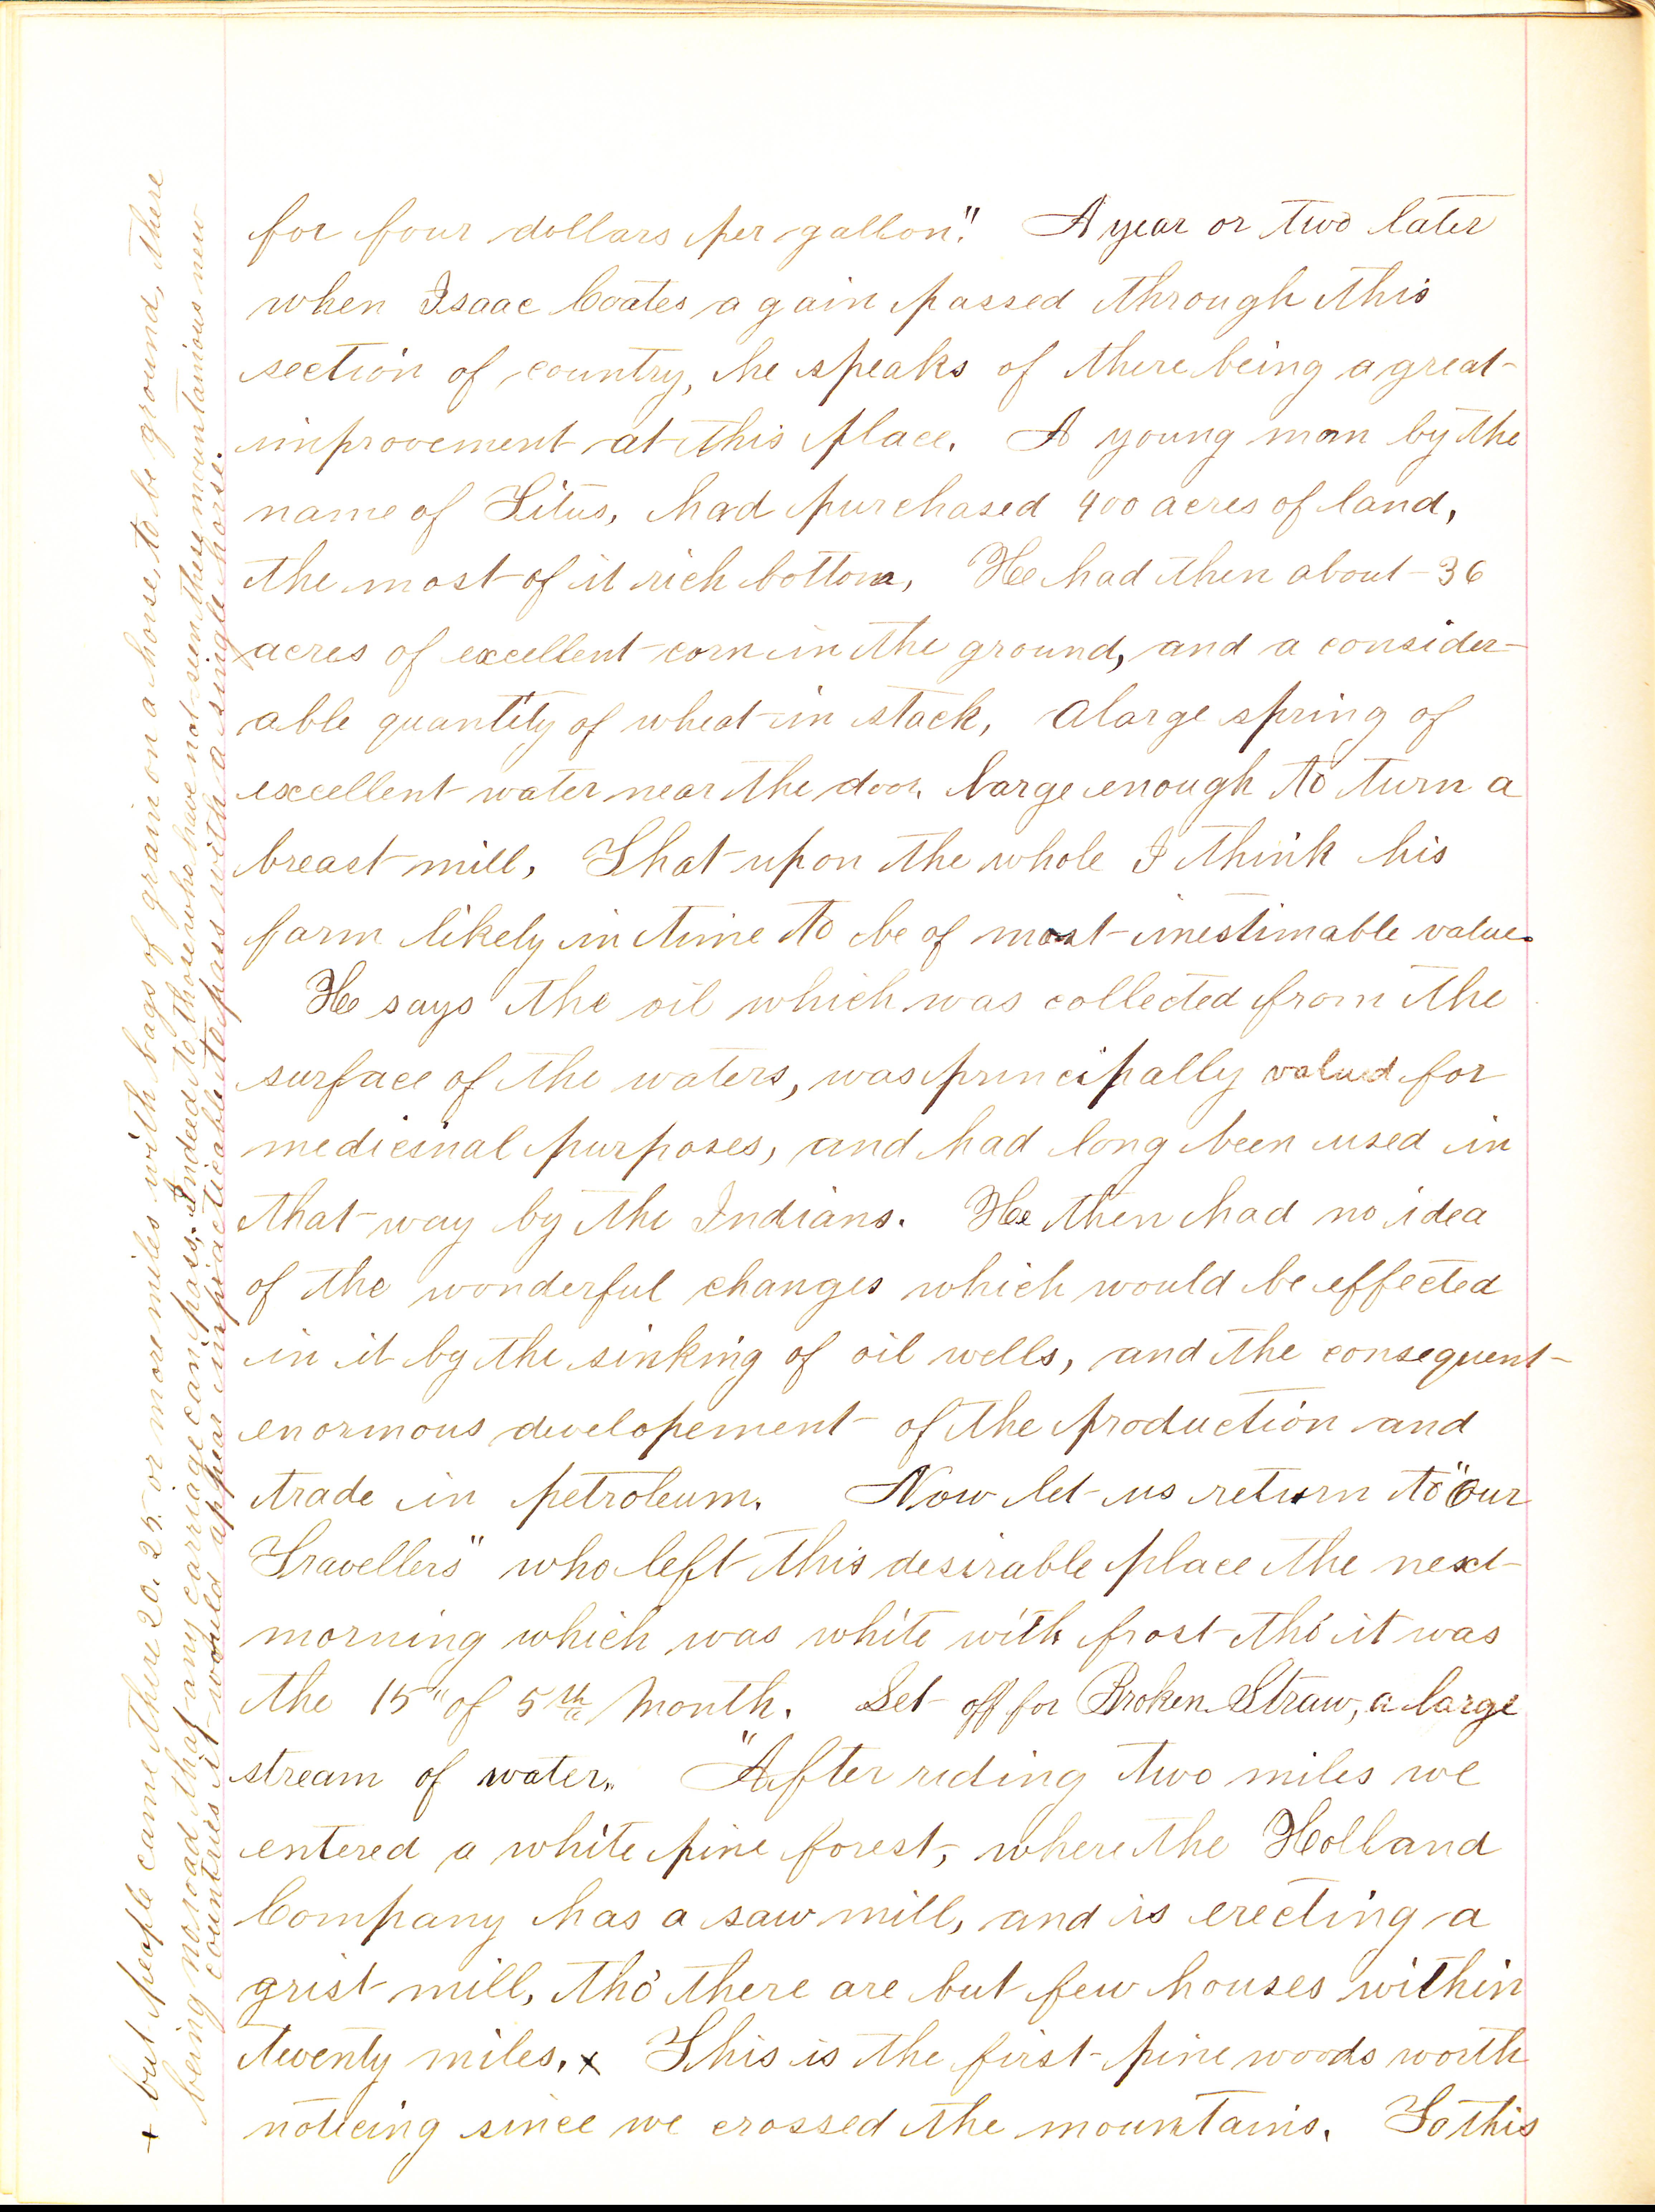 for four dollars per gallon." A year or two later
when Isaac Coates again passed through this
section of country, he speaks of there being a great
improvement at this place. A young man by the
name of Titus, had purchased 400 acres of land,
the most of it rich bottom, He had then about 36
acres of excellent corn in the ground, and a consider-
able quantity of wheat in stack, a large spring of
excellent water near the door, large enough to turn a
breast mill, That upon the whole I think his
farm likely in time to be of most inestimable value.
He says the oil which was collected from the
surface of the waters, was principally valued for
medicinal purposes, and had long been used in
that way by the Indians. He then had no idea
of the wonderful changes which would be effected
in it by the sinking of oil wells, and the consequent
enormous developement of the production and
trade in petroleum. Now let us return to "Our
Travellers" who left this desirable place the next
morning which was white with frost tho' it was
the 15" of 5th Month. Set off for Broken Straw, a large
stream of water. "After riding two miles we
entered a white pine forest, where the Holland
Company has a saw mill, and is erecting a
grist mill, tho' there are but few houses within
twenty miles. x This is the first pine woods worth
noticing since we crossed the mountains. To this
x but people came there 20. 25. or more miles with bags of grain on a horse, to be ground, there
being no road that any carriage can pass; Indeed to those who have not seen these mountainous new
countries it would appear impracticable to pass with a single horse.